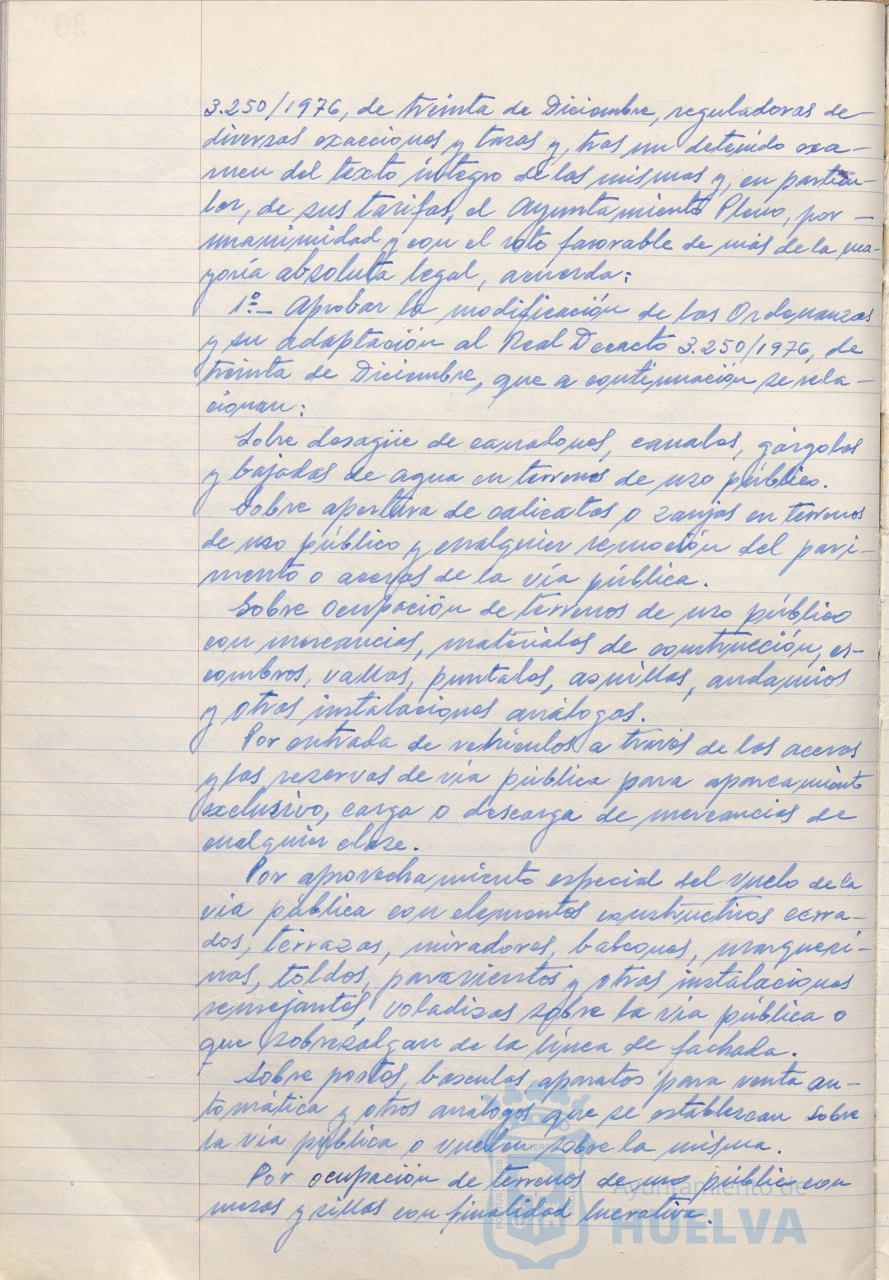 3.250/1976, de treinta de Diciembre, reguladoras de
diversas exacciones y tasas y, tras un detenido exa-
men del texto íntegro de las mismas y, en particu-
lar, de sus tarifas, el Ayuntamiento Pleno, por -
unanimidad y con el voto favorable de más de la ma-
yoría absoluta legal, acuerda:
1º.- Aprobar la modificación de las Ordenanzas
y su adaptación al Real Decreto 3.250/1976, de
treinta de Diciembre, que a continuación se rela-
cionan:
Sobre desagüe de canalones, canales, gárgolas
y bajadas de agua en terrenos de uso público.
Sobre apertura de calicatas o zanjas en terrenos
de uso público y cualquier remoción del pavi-
mento o aceras de la vía pública.
Sobre ocupación de terrenos de uso público
con mercancías, materiales de construcción, es-
combros, vallas, puntales, asnillas, andamios
y otras instalaciones análogas.
Por entrada de vehículos a través de las aceras
y las reservas de vía pública para aparcamiento
exclusivo, carga o descarga de mercancías de
cualquier clase.
Por aprovechamiento especial del vuelo de la
vía pública con elementos constructivos cerra-
dos, terrazas, miradores, balcones, marquesi-
nas, toldos, paravientos y otras instalaciones
semejantes, voladizas sobre la vía pública o
que sobresalgan de la línea de fachada.
Sobre postes, básculas, aparatos para venta au-
tomática y otros análogos que se establezcan sobre
la vía pública o vuelen sobre la misma.
Por ocupación de terrenos de uso público con
mesas y sillas con finalidad lucrativa.
Ayuntamiento de
HUELVA